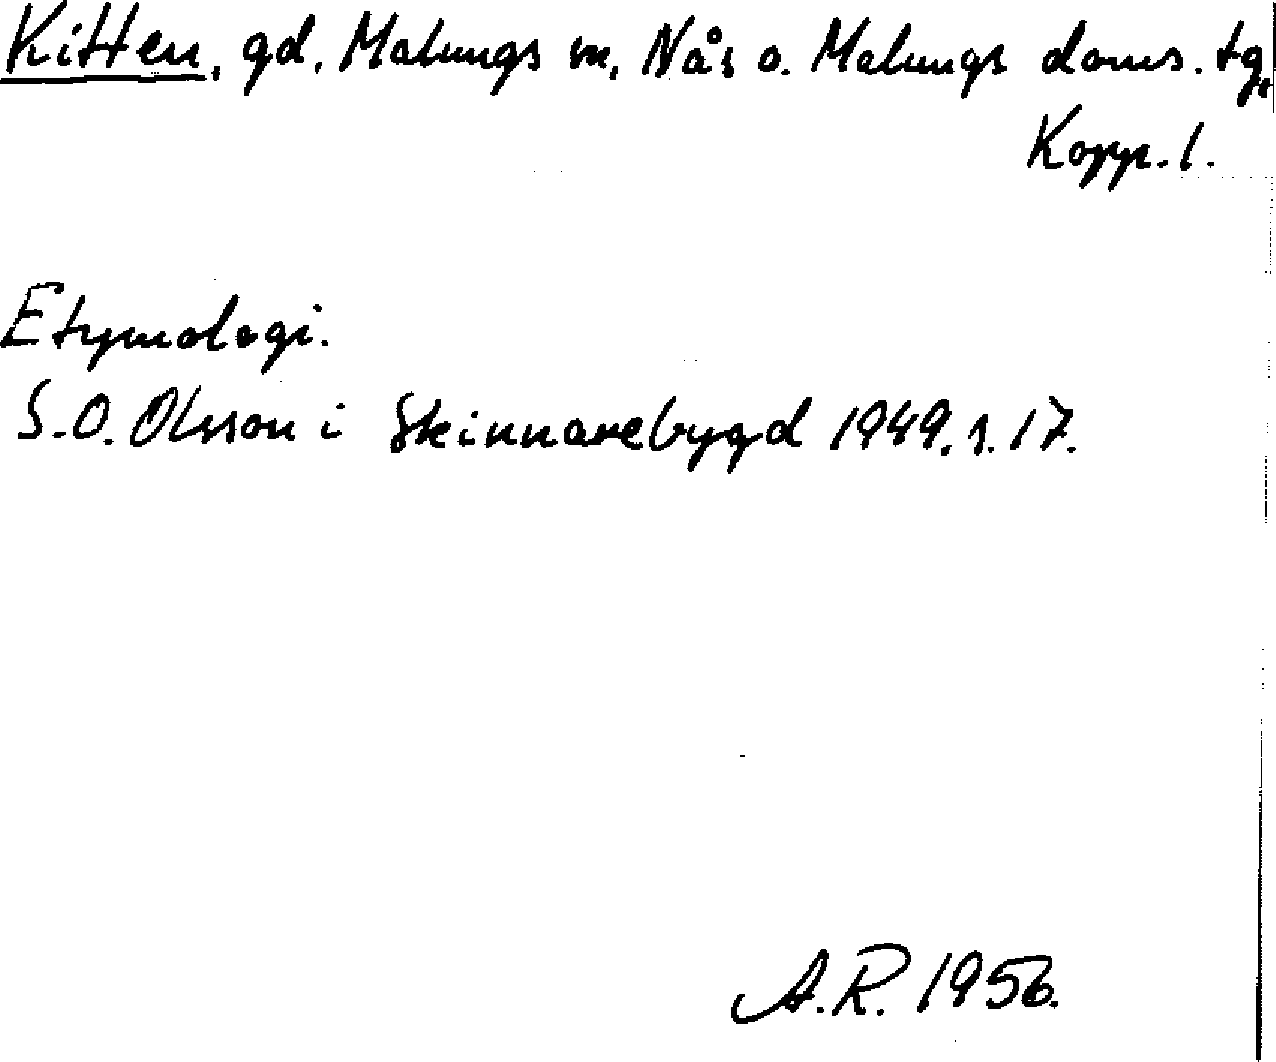 Kitten, gd, Malungs sn, Nås o. Malungs doms. tg,
Kopp. l.
Etymologi.
S.O. Olsson i Skinnarebygd 1949, s. 17.
A.R. 1956.